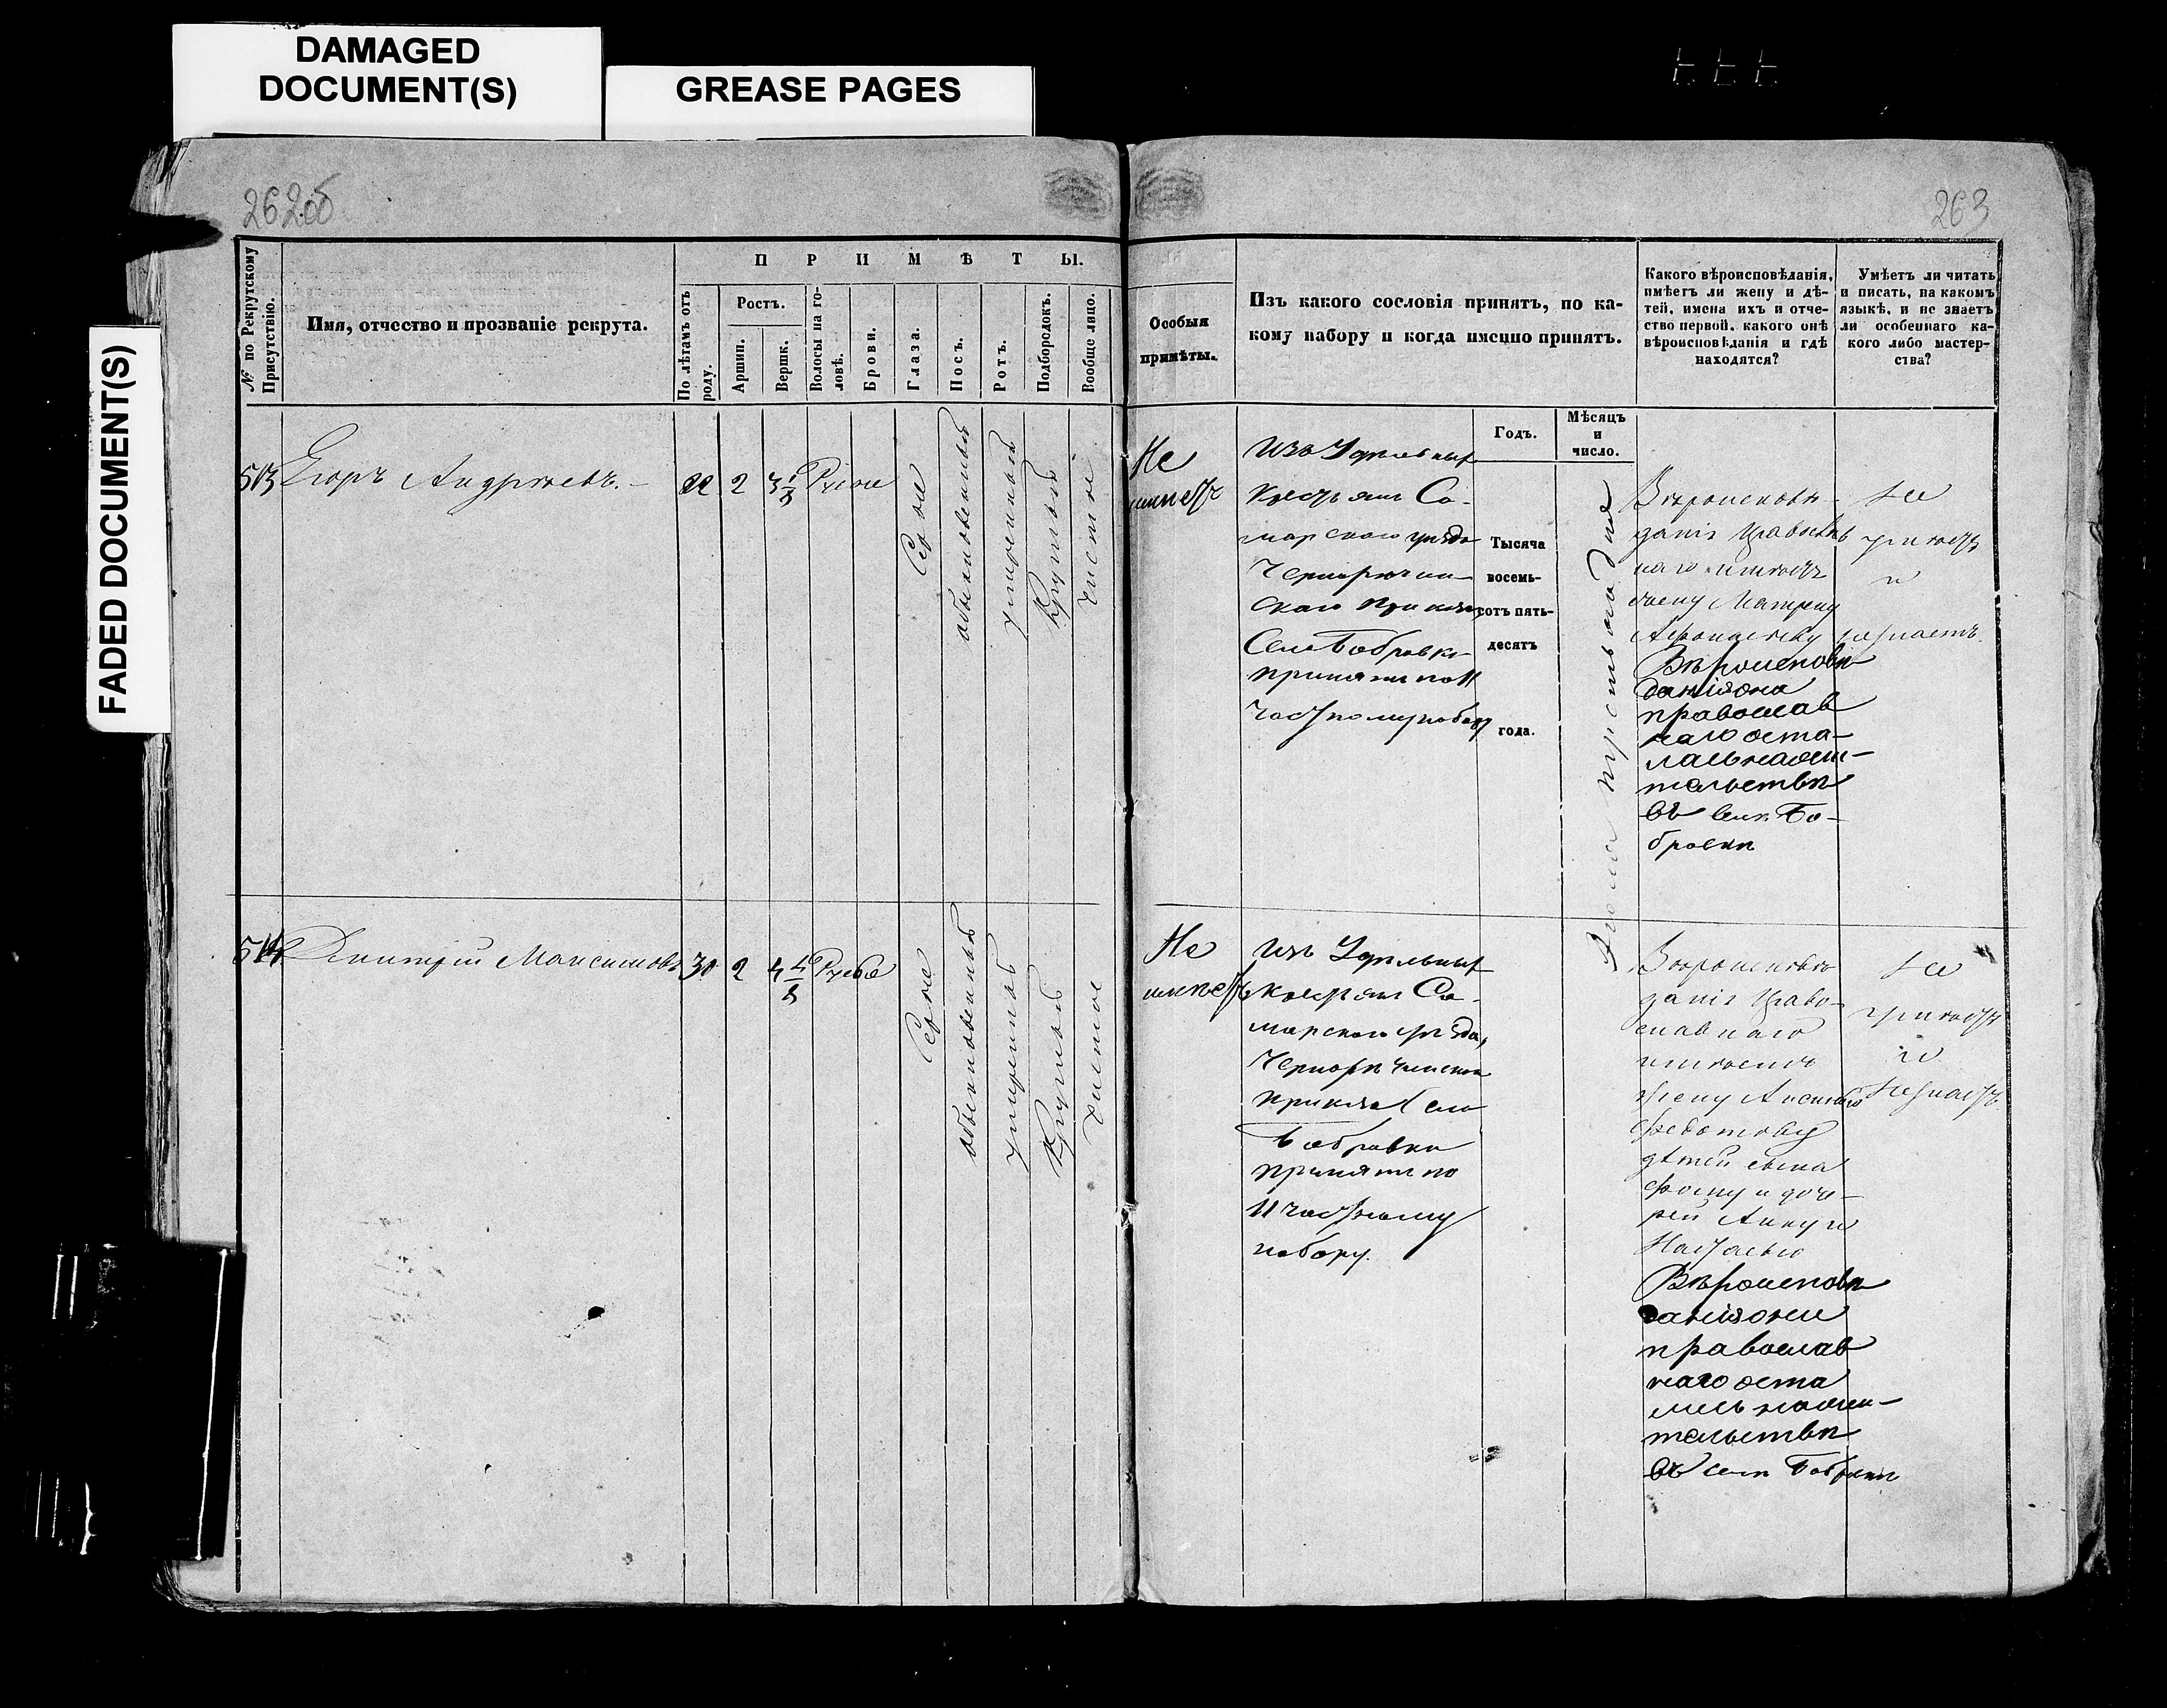 DAMAGED
DOCUMENT(S)
GREASE PAGES
FADED DOCUMENT(S)
262об
263
№ по Рекрутскому
Присутствію.
Имя, отчество и прозваніе рекрута.
ПРИМѢТЫ.
По лѣтамъ отъ
роду.
Ростъ.
Аршин.
Вершк.
Волосы на го-
ловѣ.
Брови.
Глаза.
Носъ.
Ротъ.
Подбородокъ.
Вообще лицо.
Особыя
примѣты.
Изъ какого сословія принятъ, по ка-
кому набору и когда именно принятъ.
Какого вѣроисповѣданія,
имѣетъ ли жену и дѣ-
тей, имена ихъ и отче-
ство первой, какого онѣ
вѣроисповѣданія и гдѣ
находятся?
Умѣетъ ли читать
и писать, на какомъ
языкѣ, и не знаетъ
ли особеннаго ка-
кого либо мастер-
ства?
Годъ.
Мѣсяцъ
и
число.
513
Егоръ Андреевъ.
22
2
3 1/8
Русые
Серые
обыкновенный
умеренный
Круглый
чистое
Не
имеетъ
Изъ Удельныхъ
крестьянъ Са-
марского уезда
Черноречин-
скаго приказа
Села Бобровки
принятъ по 11
частному набору
Тысяча
восемь-
сотъ пять-
десятъ
года.
Вѣроисповѣ-
данія Православ
наго имѣетъ
жену Матрену
Афонасьеву
Вѣроисповѣ
данія она
православ
наго оста-
лась на жи-
тельствѣ
въ селѣ Бо-
бровкѣ
не
умеетъ
и
незнаетъ.
514
Дмитрій Максимовъ
30
2
4 4/8
Русые
Серые
обыкновенный
умеренный
Круглый
чистое
Не
имеетъ
Изъ Удельныхъ
крестьянъ Са-
марскаго уезда,
Чернореченскаго
приказа Села
Бобровки
принятъ по
11 частному
набору.
Вѣроисповѣ
данія Право-
славнаго
имѣетъ
жену
Федотову
дѣтей сына
Фому и доче-
рей Анну и
Настасью
Вѣроисповѣ
данія они
православ
наго оста
лись на жи-
тельствѣ
въ селѣ Бобровкѣ
не
умеетъ
и
незнаетъ.